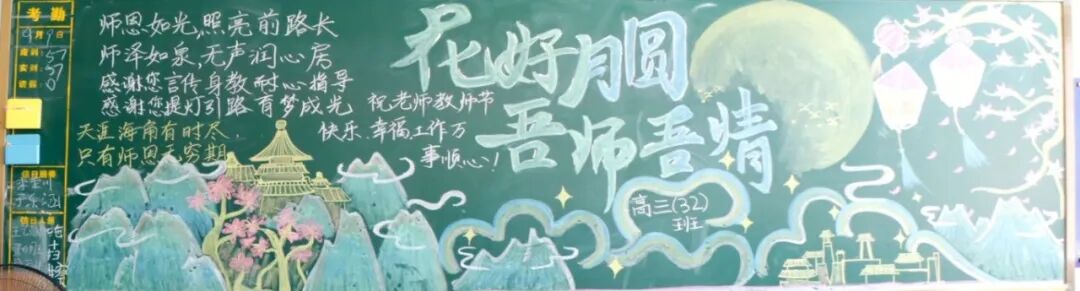 考勤
9月9日
应到:57
实到:57
请假:0
师恩如光,照亮前路长
师泽如泉,无声润心房
感谢您言传身教耐心指导
感谢您提灯引路育梦成光
天涯海角有时尽,
只有师恩无穷期
祝老师教师节
快乐、幸福、工作万
事顺心!
花好月圆
吾师吾情
高三(32)
班